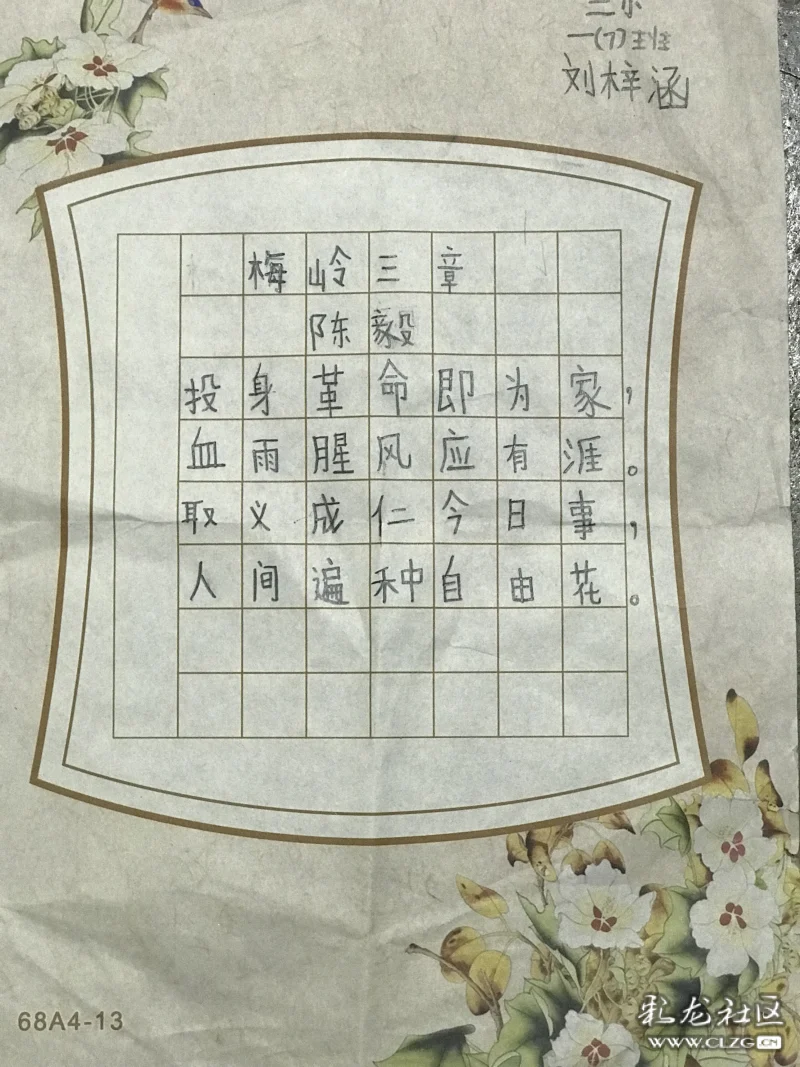 三小
一(7)班
刘梓涵
梅岭三章
陈毅
投身革命即为家，
血雨腥风应有涯。
取义成仁今日事，
人间遍种自由花。
68A4-13
彩龙社区
www.CLZG.CN